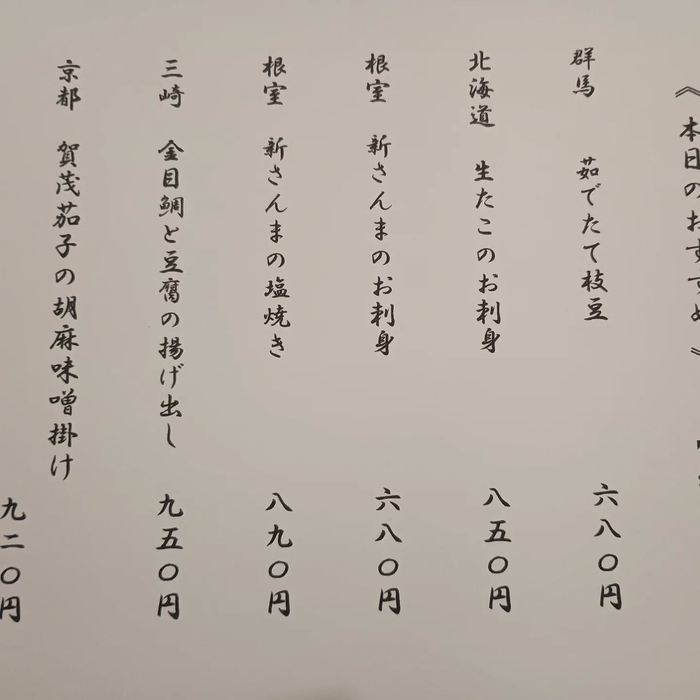 《本日のおすすめ》
群馬 茹でたて枝豆 六八〇円
北海道 生たこのお刺身 八五〇円
根室 新さんまのお刺身 六八〇円
根室 新さんまの塩焼き 八九〇円
三崎 金目鯛と豆腐の揚げ出し 九五〇円
京都 賀茂茄子の胡麻味噌掛け 九二〇円